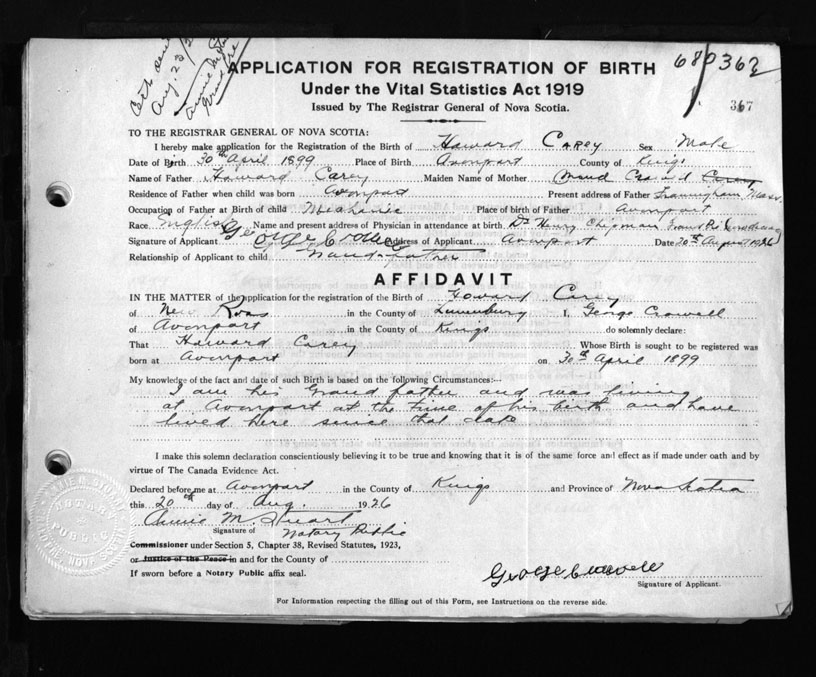 Aug. 23/
Annie M. Stuart
Grand Pre
680363
367
APPLICATION FOR REGISTRATION OF BIRTH
Under the Vital Statistics Act 1919
Issued by The Registrar General of Nova Scotia.
TO THE REGISTRAR GENERAL OF NOVA SCOTIA:
I hereby make application for the Registration of the Birth of Howard Carey Sex Male
Date of Birth 30th April 1899 Place of Birth Avonport County of Kings
Name of Father Howard Carey Maiden Name of Mother Maud
Residence of Father when child was born Avonport Present address of Father Framingham Mass.
Occupation of Father at Birth of child Mechanic Place of birth of Father Avonport
Race English Name and present address of Physician in attendance at birth Dr Henry Chipman Grand Pre
Signature of Applicant George Crowell Address of Applicant Avonport Date 20th August 1926
Relationship of Applicant to child Grandfather
AFFIDAVIT
IN THE MATTER of the application for the registration of the Birth of Howard Carey
of New Ross in the County of Lunenburg I, George Crowell
of Avonport in the County of Kings do solemnly declare:
That Howard Carey Whose Birth is sought to be registered was
born at Avonport on 30th April 1899
My knowledge of the fact and date of such Birth is based on the following Circumstances:—
I am his Grand father and was living
at Avonport at the time of his birth and have
lived here since that date
I make this solemn declaration conscientiously believing it to be true and knowing that it is of the same force and effect as if made under oath and by
virtue of The Canada Evidence Act.
Declared before me at Avonport in the County of Kings and Province of Nova Scotia
this 20th day of Aug. 1926
Annie M. Stuart
Signature of Notary Public
Commissioner under Section 5, Chapter 38, Revised Statutes, 1923,
or Justice of the Peace in and for the County of
If sworn before a Notary Public affix seal.
George Crowell
Signature of Applicant.
For Information respecting the filling out of this Form, see Instructions on the reverse side.
ANNIE M. STUART
NOTARY
PUBLIC
GRAND PRE NOVA SCOTIA